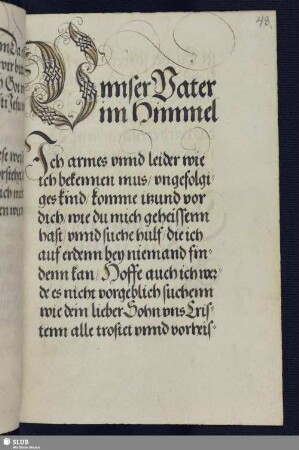 48.
Unnser Vater
inn Himmel
Ich armes unnd leider wie
ich bekennen mus/ ungefolgi-
ges kind/ komme itzund vor
dich/ wie du mich geheissenn
hast/ unnd suche hulf/ die ich
auf erdenn bey niemand fin-
denn kan/ Hoffe auch ich wer-
de es nicht vorgeblich suchenn
wie dein lieber Sohn uns Cris-
tenn alle trostet unnd vorheis-
SLUB